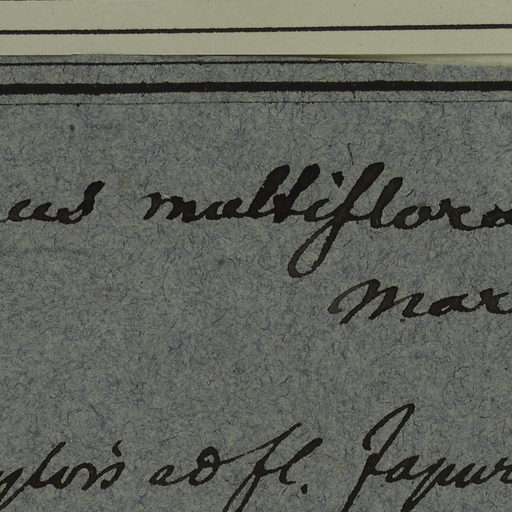 us multiflora
Mar
ylvis ad fl. Japur